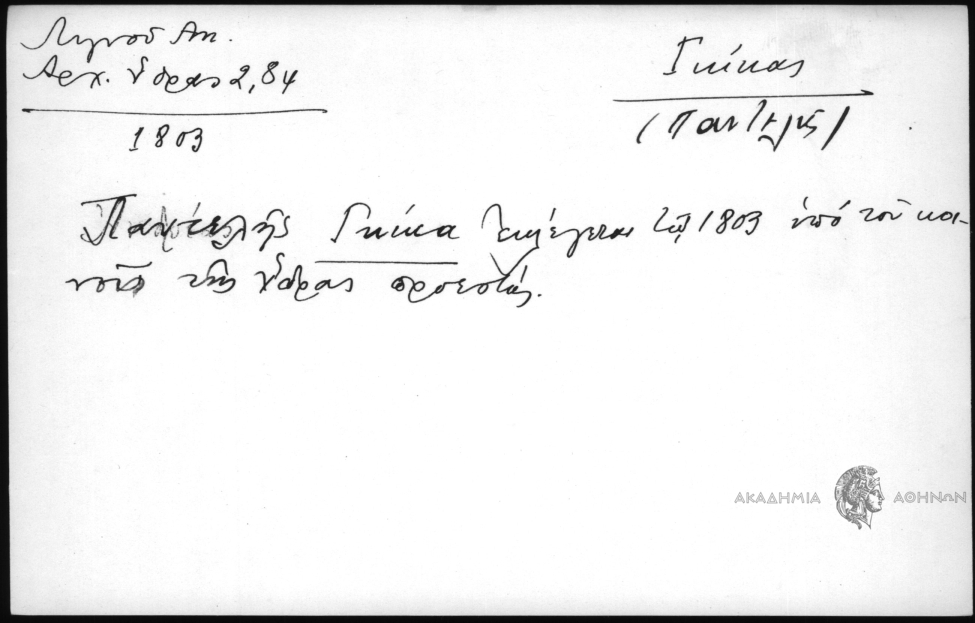 Λιγνοῦ Αν.
Ἀρχ. Ὕδρας 2, 84
1803
Γκίκας
(Παντελῆς)
Παντελῆς Γκίκα ἐκλέγεται τῷ 1803 ὑπὸ τοῦ κοι-
νοῦ τῆς Ὕδρας προεστώς.
ΑΚΑΔΗΜΙΑ ΑΘΗΝΩΝ